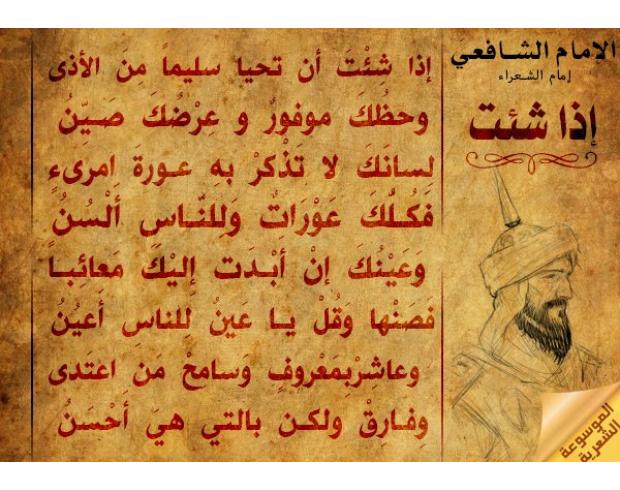 الإمام الشافعي
إمام الشعراء
إذا شئت
إذا شئْتَ أن تحيا سليماً مِنَ الأذى
وحظُكَ موفورٌ و عِرْضُكَ صَيّنُ
لسانَكَ لا تَذْكرْ بهِ عورةَ امرىءٍ
فَكُلُكَ عَوْرَاتٌ وَللنّاسِ ألْسُنُ
وَعَيْنُكَ إنْ أبْدَت إليْكَ مَعائِباً
فَصَنْها وَقُلْ يا عَينُ للناسِ أعيُنُ
وعاشِرْبمَعْروفٍ وَسامحْ مَن اعتَدى
وِفارِقْ ولكن بالتي هيَ أحْسَنُ
الموسوعة
الشعرية